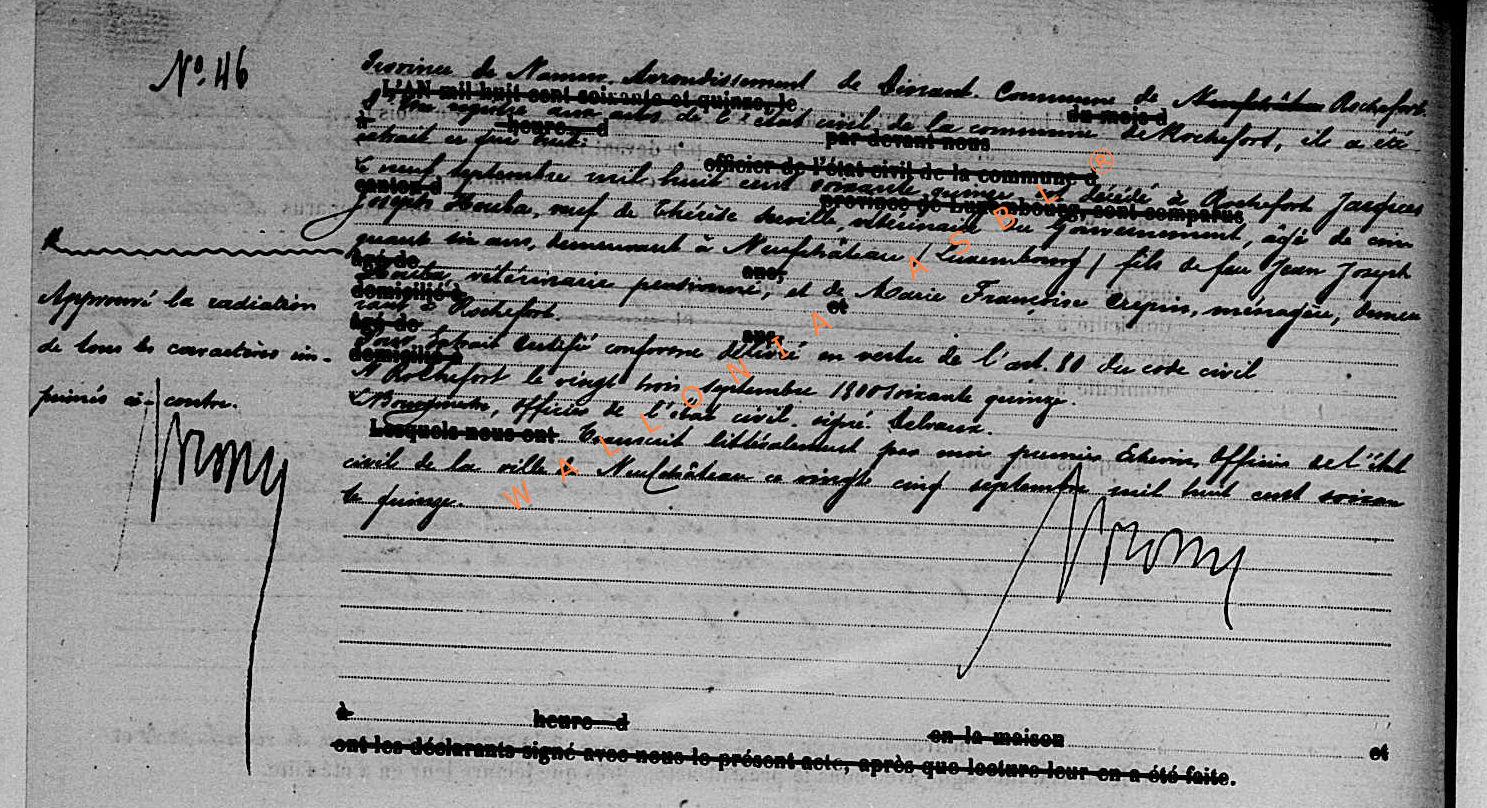 No. 46
Province de Namur. Arrondissement de Dinant. Commune de Neufchâteau Rochefort.
L'AN mil huit cent soixante et quinze, le du mois d
registre aux actes de l'état civil de la commune de Rochefort, il a été
à heure d par devant nous
extrait ce qui suit:
officier de l'état civil de la commune d
Le neuf septembre mil huit cent soixante quinze est décédé à Rochefort Jacques
canton d province de Luxembourg, sont comparus
Joseph Houba, veuf de Thérèse, vétérinaire du Gouvernement, âgé de cin
quante six ans, demeurant à Neufchâteau (Luxembourg) fils de feu Jean Joseph
âgé de ans,
Houba, vétérinaire pensionné, et de Marie Françoise Crepin, ménagère, demeu
domicilié à et
rant à Rochefort.
âgé de ans,
Pour extrait certifié conforme délivré en vertu de l'art. 80 du code civil
domicilié à
A Rochefort le vingt trois septembre 1800 soixante quinze.
Le Bourgmestre, officier de l'état civil. signé Delvaux.
Lesquels nous ont Transcrit littéralement par moi premier Echevin, Officier de l'état
civil de la ville de Neufchâteau ce vingt cinq septembre mil huit cent soixan
te quinze.
Approuvé la radiation
de tous les caractères im-
primés ci-contre.
à heure d en la maison et
ont les déclarants signé avec nous le présent acte, après que lecture leur en a été faite.
WALLONIA ASBL ®